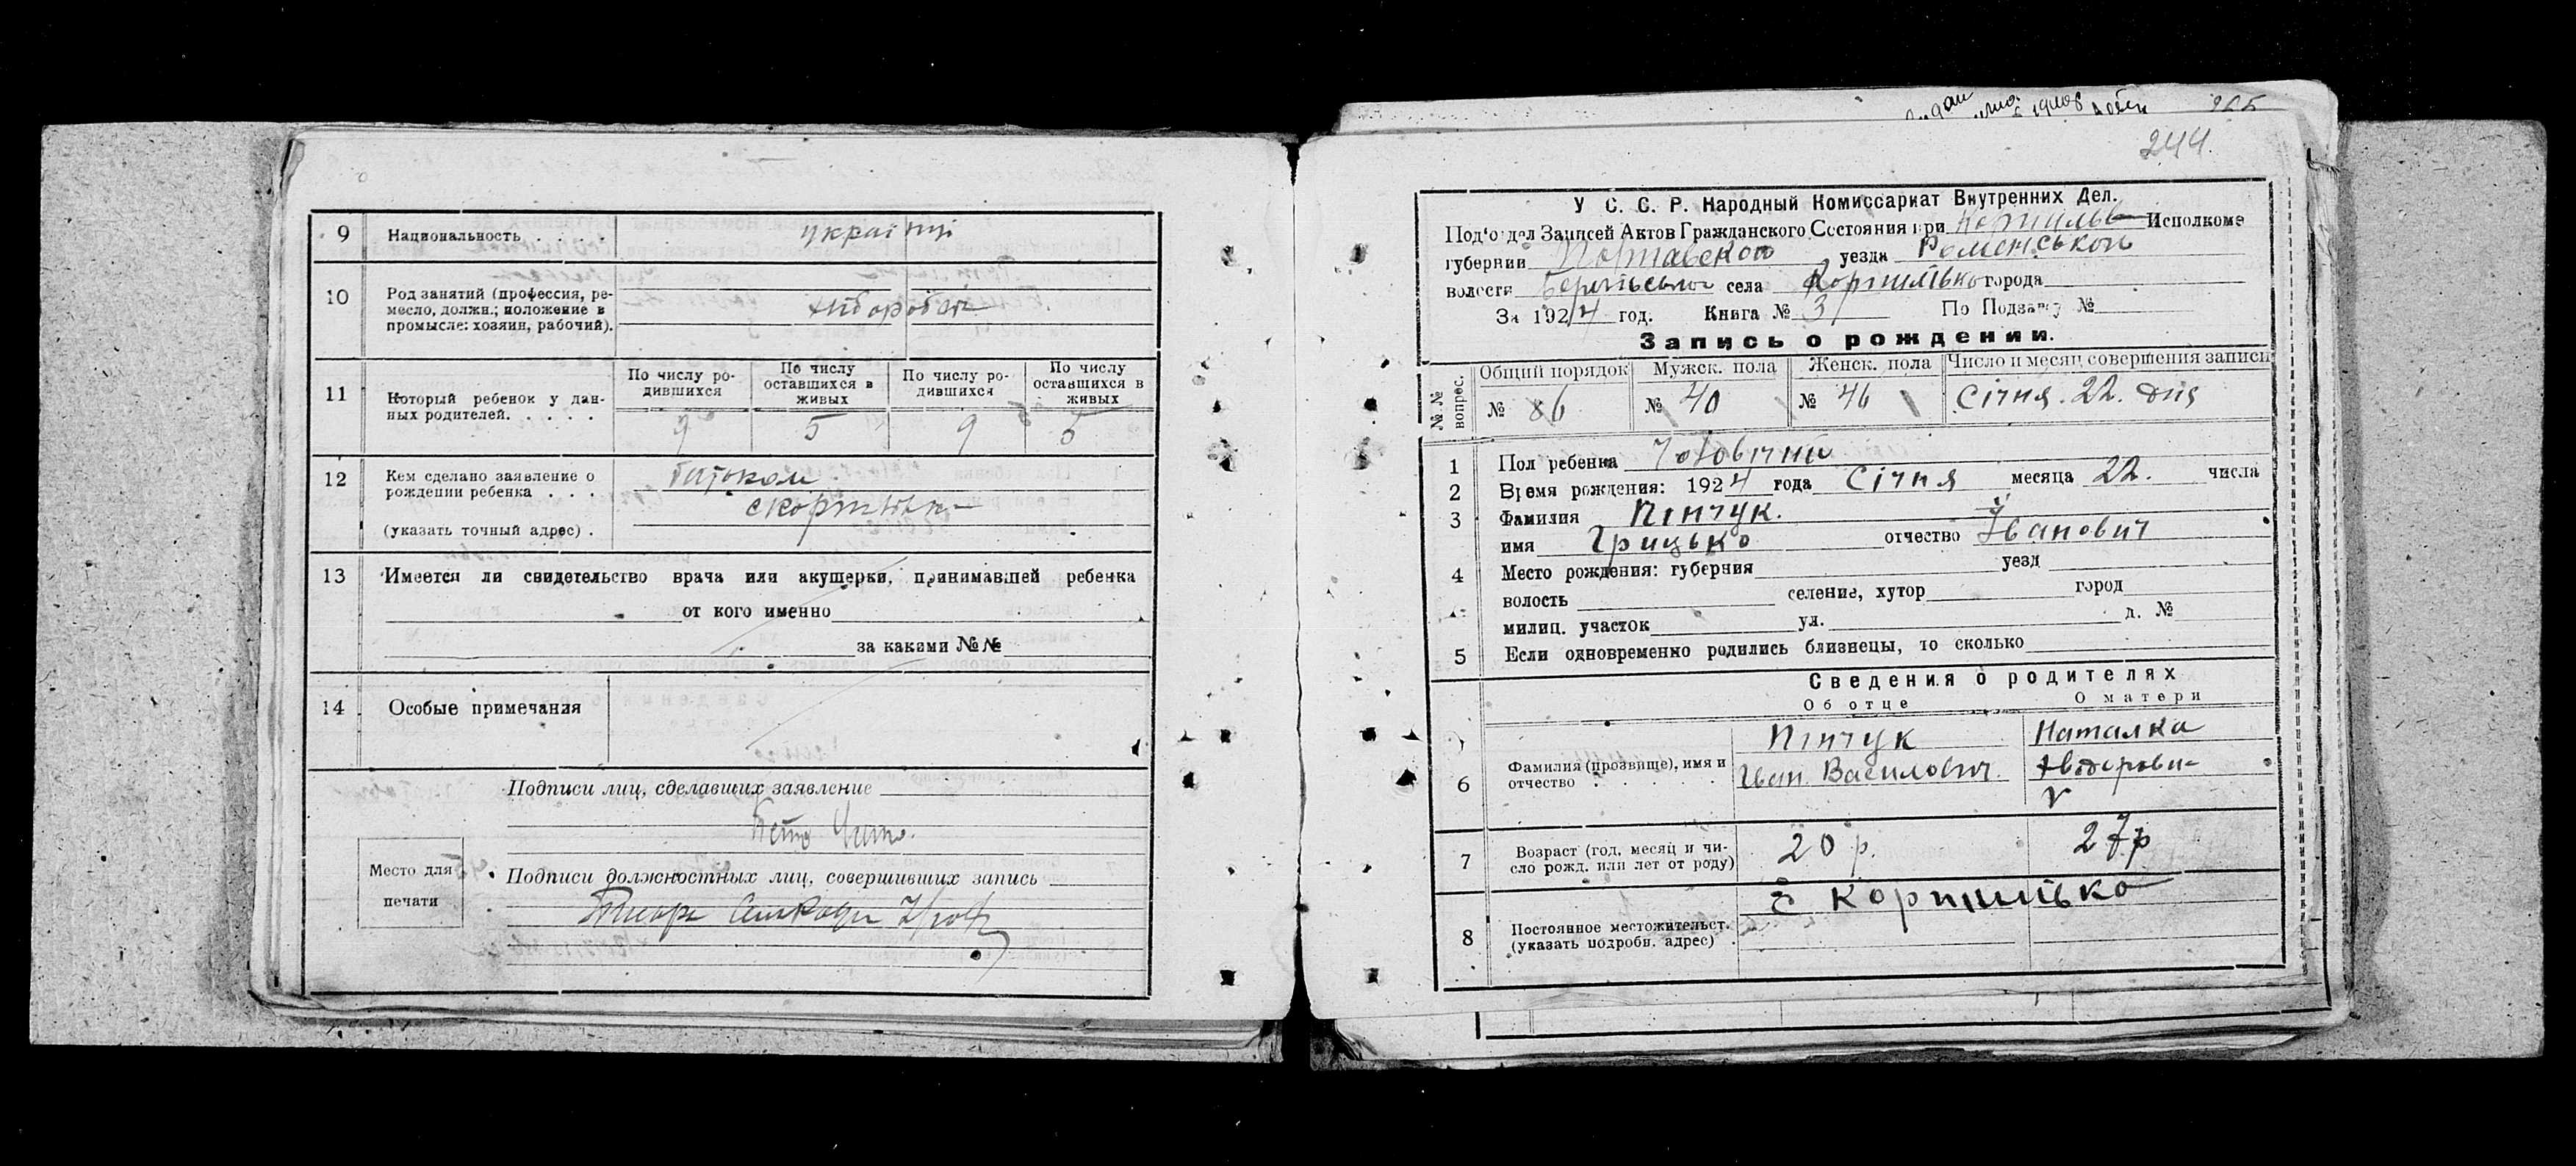 9 Национальность . . . . українці
10 Род занятий (профессия, ре-
месло, должн.; положение в
промысле: хозяин, рабочий).
хлібороби
11 Который ребенок у дан-
ных родителей. . . . .
По числу ро-
дившихся
По числу
оставшихся в
живых
По числу ро-
дившихся
По числу
оставшихся в
живых
9 5 9 5
12 Кем сделано заявление о
рождении ребенка . . .
(указать точный адрес) .
батьком
13 Имеется ли свидетельство врача или акушерки, принимавшей ребенка
от кого именно
за какими №№
14 Особые примечания
Подписи лиц, сделавших заявление
Место для
печати
Подписи должностных лиц, совершивших запись
244.
У С. С. Р. Народный Комиссариат Внутренних Дел.
Под'отдел Записей Актов Гражданского Состояния при Исполкоме
губернии Полтавской уезда Роменськой
волости села города
За 1924 год. Книга № 3 По Подзагу №
Запись о рождении.
№ №
вопрос.
Общий порядок
Мужск. пола
Женск. пола
Число и месяц совершения записи
№ 86 № 40 № 46 Січня. 22. дня
1 Пол ребенка Чоловічий
2 Время рождения: 1924 года Січня месяца 22. числа
3 Фамилия Пінчук.
имя Грицько отчество Іванович
4 Место рождения: губерния уезд
волость селение, хутор город
милиц. участок ул. д. №
5 Если одновременно родились близнецы, то сколько
Сведения о родителях
Об отце О матери
6 Фамилия (прозвище), имя и
отчество . . . .
Пінчук
Іван Василович.
Наталка
7 Возраст (год, месяц и чи-
сло рожд. или лет от роду)
20 р. 27 р
8 Постоянное местожительст.
(указать подробн. адрес) .